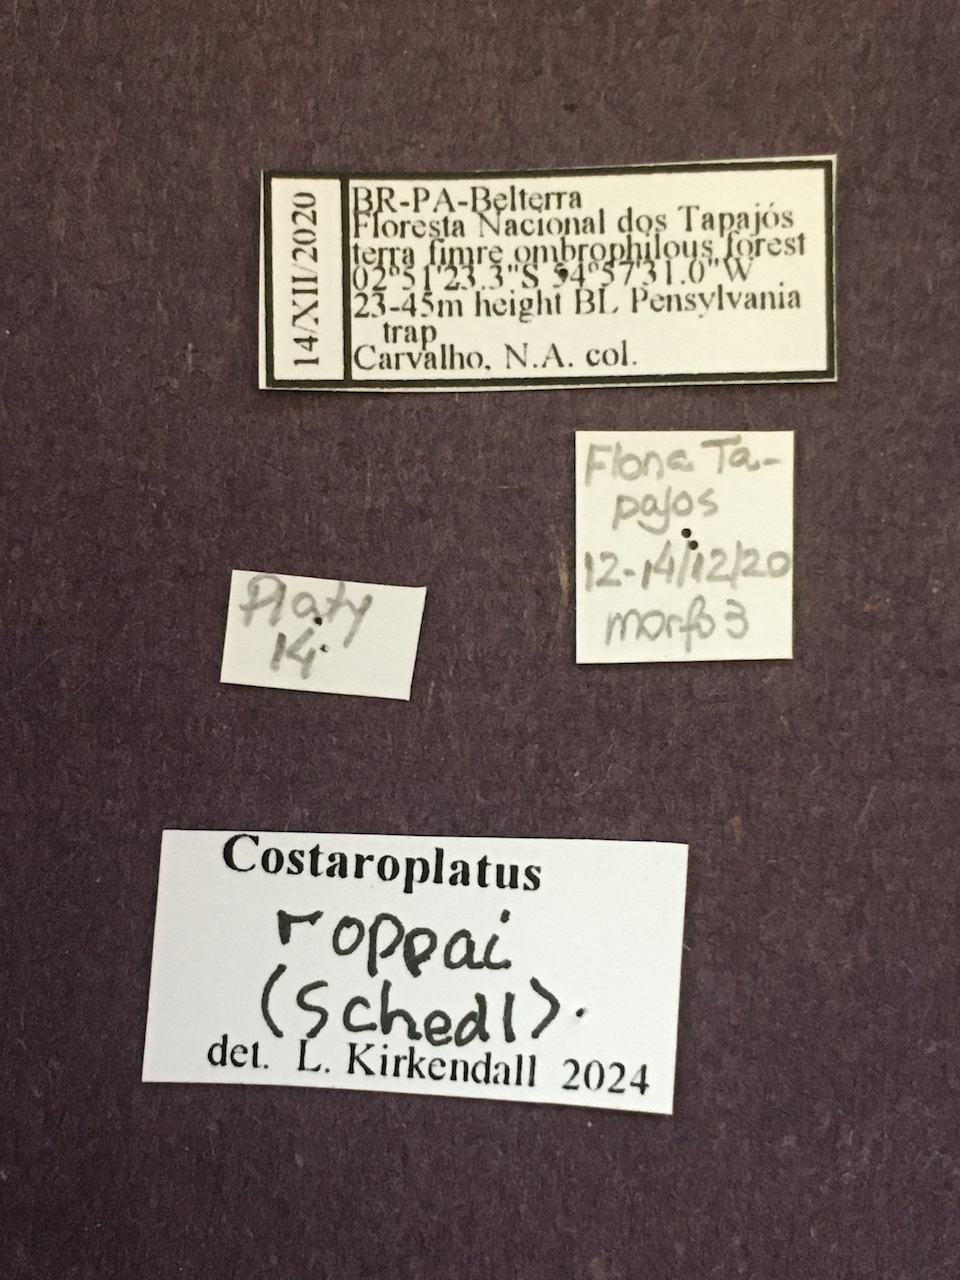 14/XII/2020
BR-PA-Belterra
Floresta Nacional dos Tapajós
terra fimre ombrophilous forest
02°51'23.3"S 54°57'31.0"W
23-45m height BL Pensylvania
trap
Carvalho, N.A. col.
Flona Ta-
pajos
12-14/12/20
morfo 3
Platy
14
Costaroplatus
roppai
(Schedl)
det. L. Kirkendall 2024